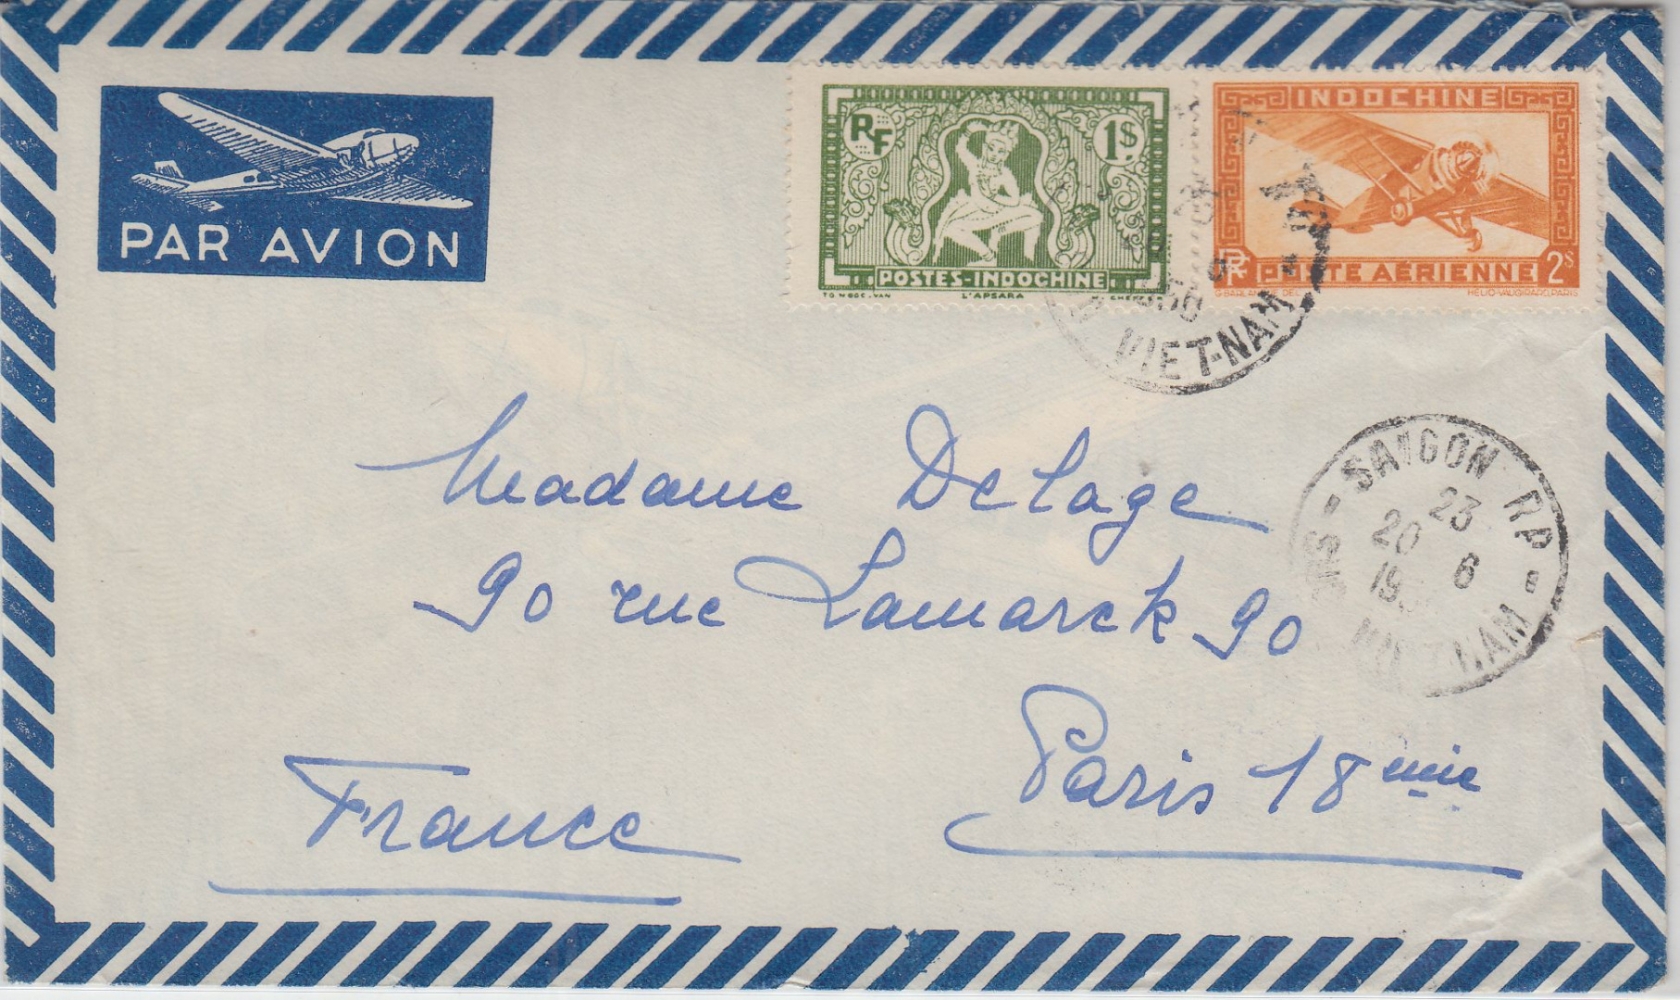 PAR AVION
RF
1$
POSTES-INDOCHINE
L'APSARA
INDOCHINE
RF POSTE AÉRIENNE 2$
VIET-NAM
SAIGON RP
23
20 6
VIET-NAM
Madame Delage
90 rue Lamarck 90
Paris 18 eme
France